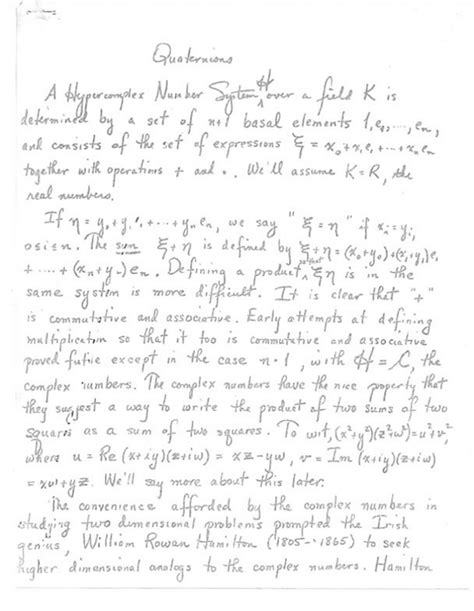 Quaternions
A Hypercomplex Number System ℋ over a field K is
determined by a set of n+1 basal elements 1, e₁, ..., eₙ,
and consists of the set of expressions ξ = x₀ + x₁e₁ + ··· + xₙeₙ
together with operations + and · . We'll assume K = R, the
real numbers.
If η = y₀ + y₁ + ··· + yₙeₙ, we say "ξ = η" if xᵢ = yᵢ,
0≤i≤n. The sum ξ + η is defined by ξ + η = (x₀+y₀)+(x₁+y₁)e₁
+ ···· + (xₙ+yₙ)eₙ. Defining a product, so that ξη is in the
same system is more difficult. It is clear that "+"
is commutative and associative. Early attempts at defining
multiplication so that it too is commutative and associative
proved futile except in the case n=1, with ℋ = C, the
complex numbers. The complex numbers have the nice property that
they suggest a way to write the product of two sums of two
squares as a sum of two squares. To wit, (x²+y²)(z²+w²)=u²+v²,
where u = Re (x+iy)(z+iw) = xz-yw, v = Im (x+iy)(z+iw)
= xw+yz. We'll say more about this later.
The convenience afforded by the complex numbers in
studying two dimensional problems prompted the Irish
genius, William Rowan Hamilton (1805-1865) to seek
higher dimensional analogs to the complex numbers. Hamilton